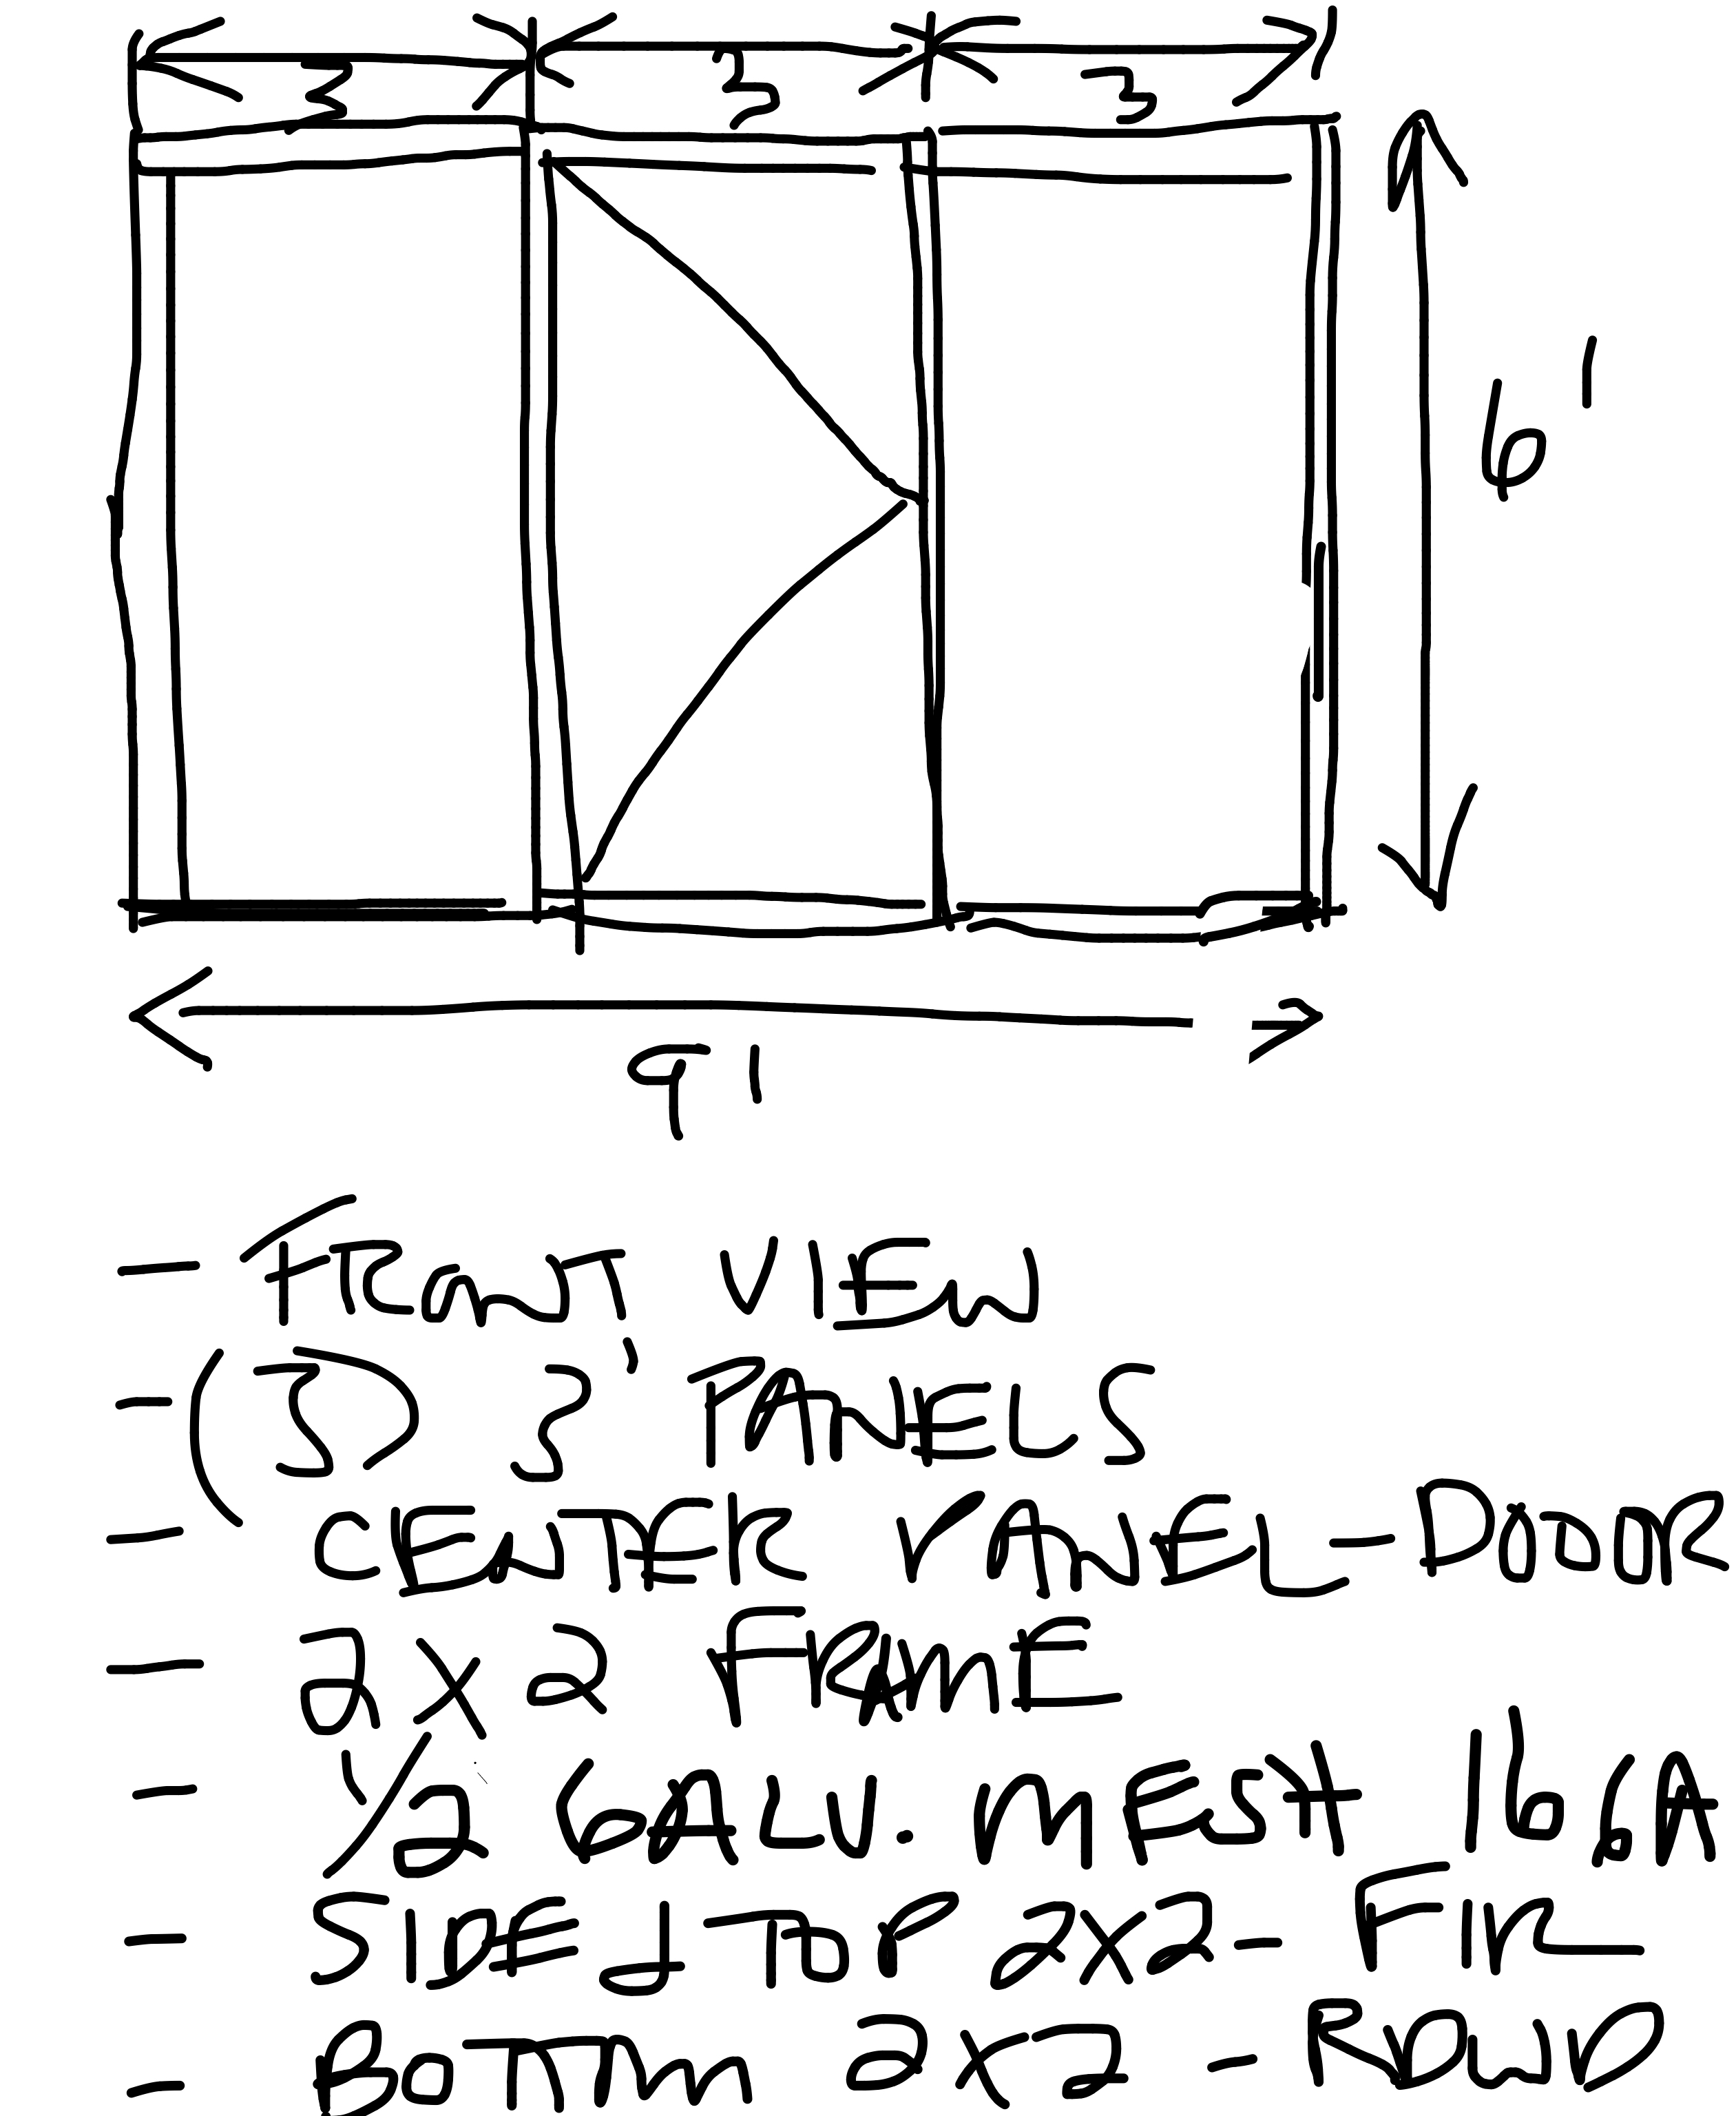 3 3 3
6'
9'
- FRONT VIEW
- (3) 3' PANELS
- CENTER PANEL - DOOR
- 2x2 FRAME
- 1/2 GALV. MESH 16GA
- SIDE & TOP 2x2 - FIR
- BOTTOM 2x2 - RDWD